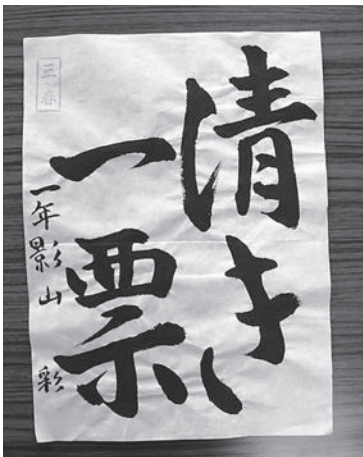 清き
一票
一年影山彩
三春